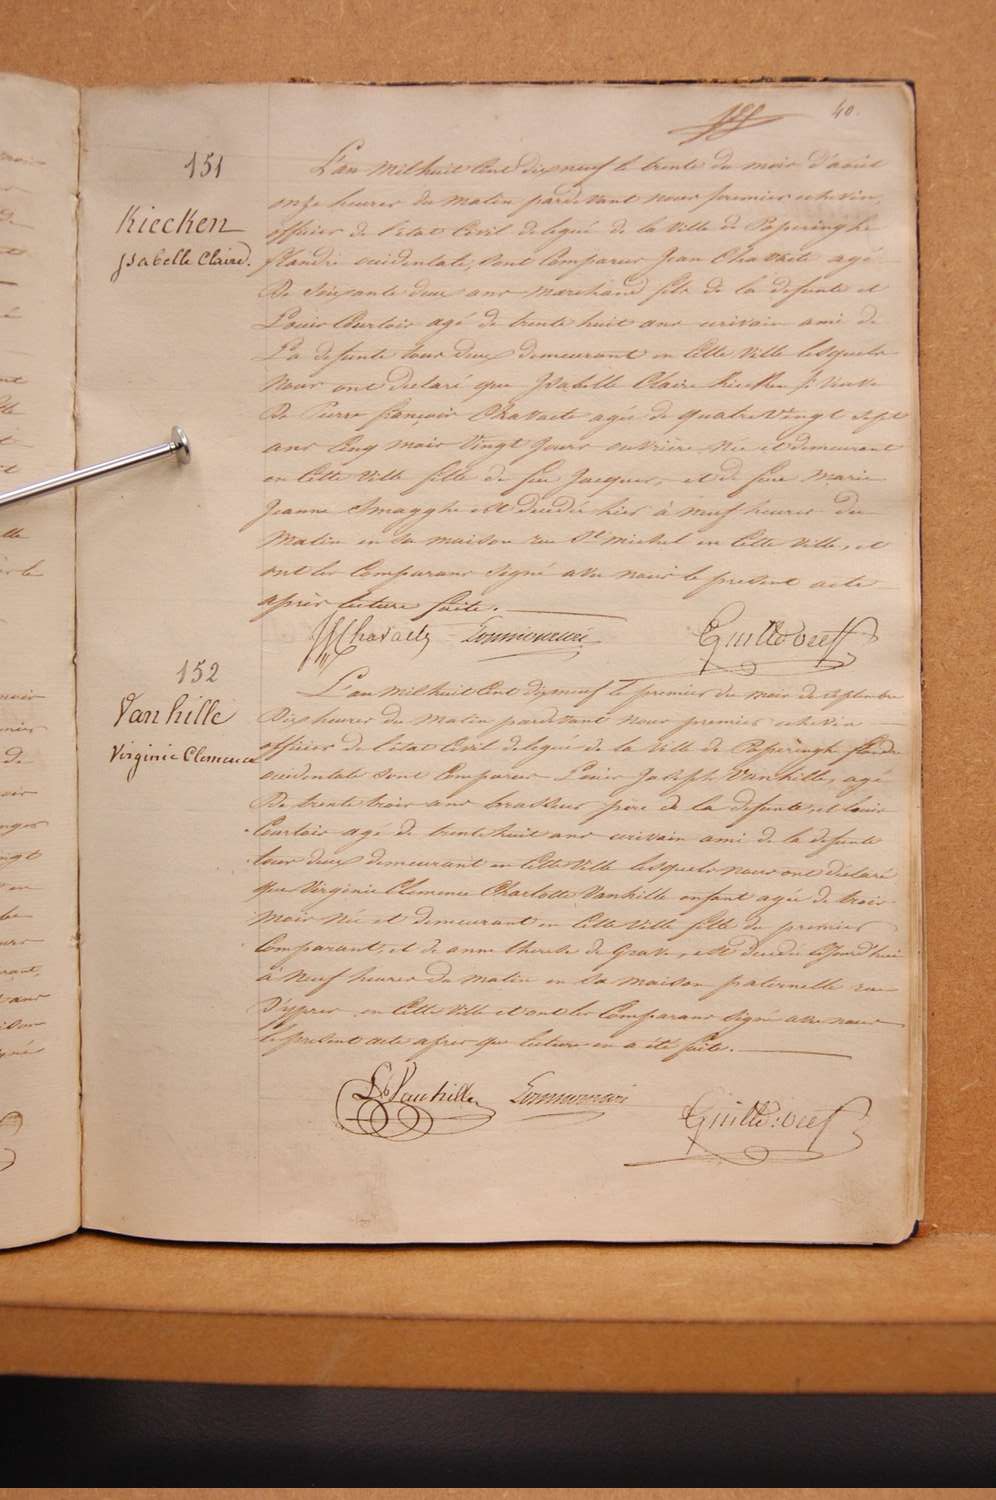 40.
151
Kiecken
Isabelle Claire.
L'an mil huit Cent dix neuf le trente du mois d'août
onze heures du matin pardevant nous premier echevin,
officier de l'état Civil delegué de la Ville de Poperinghe
flandre occidentale, sont Comparus Jean Chavaete agé
De soixante deux ans marchand fils de la defunte et
Louis Courtois agé de trente huit ans ecrivain ami de
La defunte tous deux demeurant en Cette Ville lesquels
Nous ont declaré que Isabelle Claire Kiecken veuve
De Pierre françois Chavaete agée de quatre Vingt sept
ans Cinq mois Vingt Jours ouvrière Née et demeurant
en Cette Ville fille de feu Jacques, et de feue Marie
Jeanne Smagghe est decedée hier à neuf heures du
Matin en sa maison rue St michel en Cette Ville, et
ont les Comparans Signé avec nous le present acte
après lecture faite.
Chavaete
152
Vanhille
Virginie Clemence
L'an mil huit Cent dix neuf le premier du mois de septembre
Dix heures du Matin pardevant Nous premier echevin
officier de l'état Civil delegué de la Ville de Poperinghe flandre
occidentale sont Comparus Louis Joseph Vanhille, agé
De trente trois ans brasseur père de la defunte, et Louis
Courtois agé de trente huit ans ecrivain ami de la defunte
tous deux demeurant en Cette Ville lesquels nous ont déclaré
que Virginie Clemence Charlotte Vanhille enfant agée de trois
mois Née et demeurant en Cette Ville fille du premier
Comparant, et de anne therese de Grave, est decedée cejourd'hui
à Neuf heures du matin en sa maison paternelle rue
D'ypres en Cette Ville et ont les Comparans Signé avec nous
le present acte apres que lecture en a été faite.
Vanhille